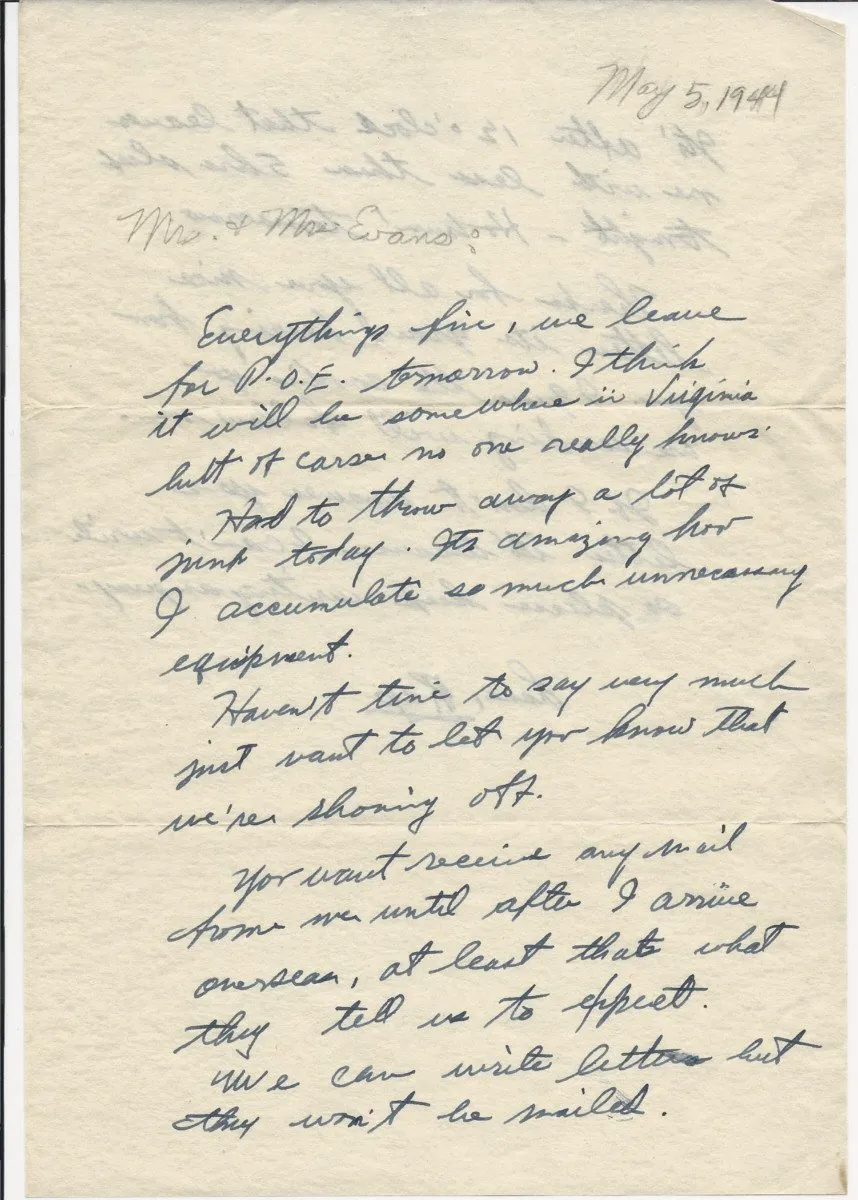 May 5, 1944
Mr. & Mrs Evans:
Everythings fine, we leave
for P.O.E. tomorrow. I think
it will be somewhere in Virginia
butt of carse no one really knows.
Had to throw away a lot of
junk today. Its amazing how
I accumulate so much unnecessary
equipment.
Haven't time to say very much
just want to let you know that
we're shoving off.
You want receive any mail
from me until after I arrive
overseas, at least thats what
they tell us to expect.
We can write letters but
they won't be mailed.